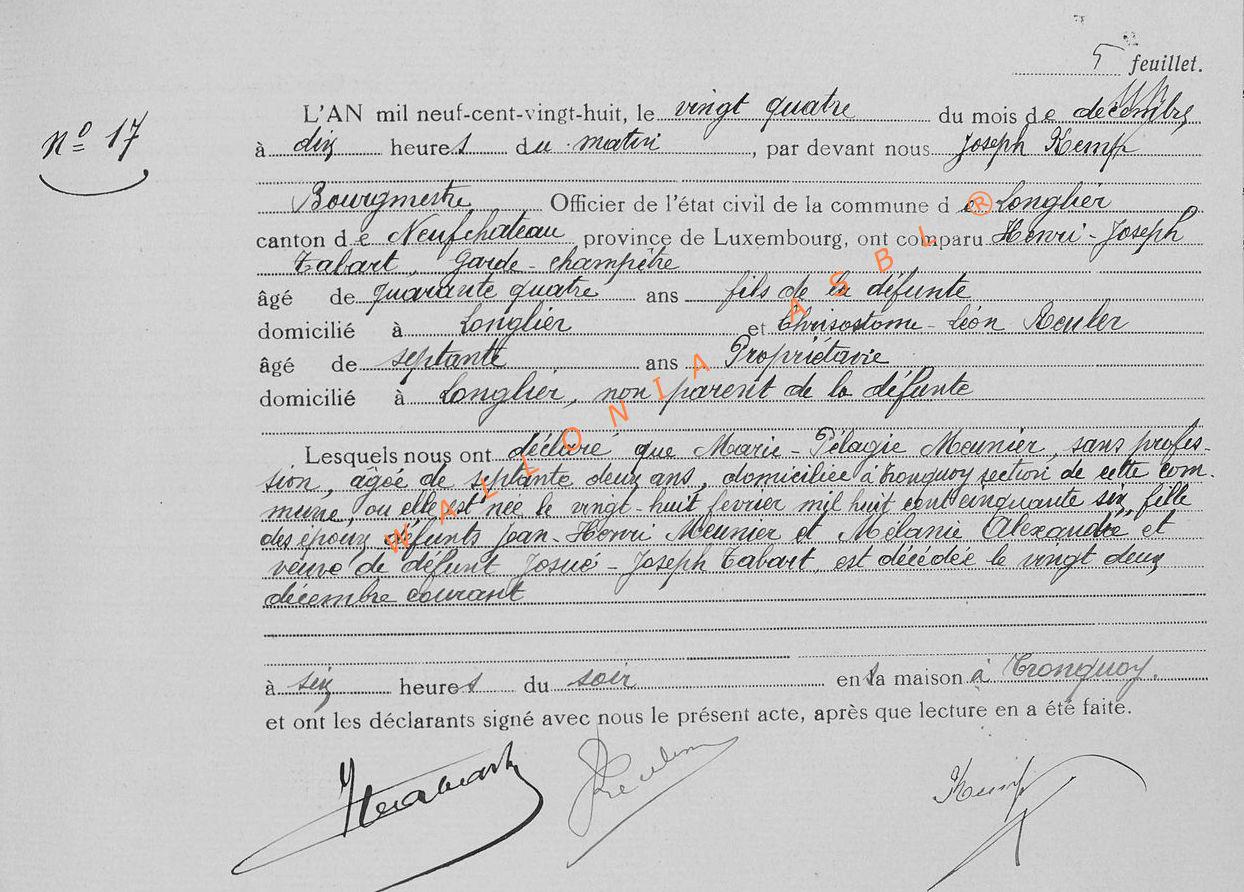 5 feuillet.
L'AN mil neuf-cent-vingt-huit, le vingt quatre du mois de décembre
n° 17
à dix heures du matin, par devant nous Joseph Kempf
Bourgmestre Officier de l'état civil de la commune de Longlier
canton de Neufchateau province de Luxembourg, ont comparu Henri-Joseph
Tabart, Garde-champêtre
âgé de quarante quatre ans fils de la défunte
domicilié à Longlier et Chrisostome-Léon Reuler
âgé de septante ans Propriétaire
domicilié à Longlier, non parent de la défunte
Lesquels nous ont déclaré que Marie-Pélagie Meunier, sans profes-
sion, âgée de septante deux ans, domiciliée à Tronquoy section de cette com-
mune, ou elle est née le vingt-huit fevrier mil huit cent cinquante six, fille
des époux défunts Jean-Henri Meunier et Mélanie Alexandre et
veuve de défunt Josué-Joseph Tabart, est décédée le vingt deux
décembre courant
à six heures du soir en sa maison à Tronquoy.
et ont les déclarants signé avec nous le présent acte, après que lecture en a été faite.
Kempf
WALLONIA ASBL ®